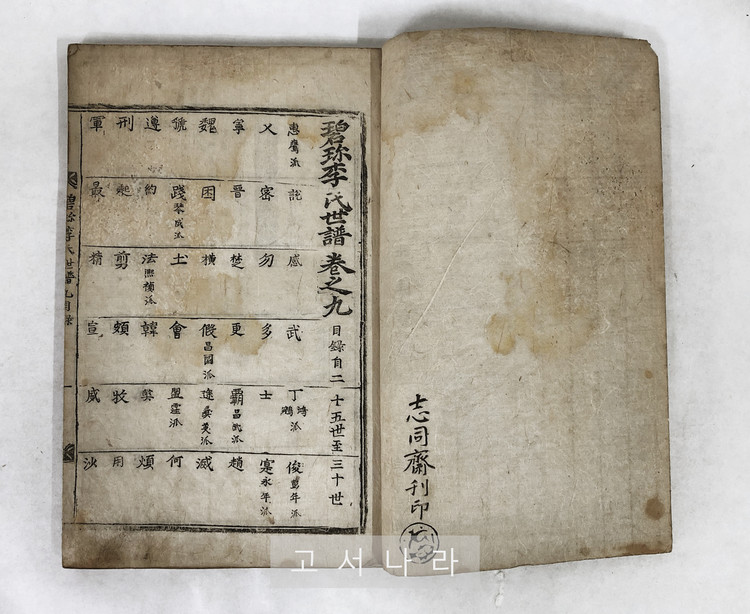 志同齋刊印
碧珍李氏世譜 卷之九 目錄自二十五世至三十世
惠鷹派 說 感 武 丁 派 俊 彭年派
乂 密 勿 多 士 寔 永年派
寧 晉 楚 更 霸 昌武派 趙
魏 困 橫 假 昌國派 途 派 滅
虢 踐 琴成派 土 會 盟 霆派 何
遵 約 法 派 韓 弊 煩
刑 起 翦 頗 牧 用
軍 最 精 宣 威 沙
碧珍李氏世譜 九 目錄
고서나라